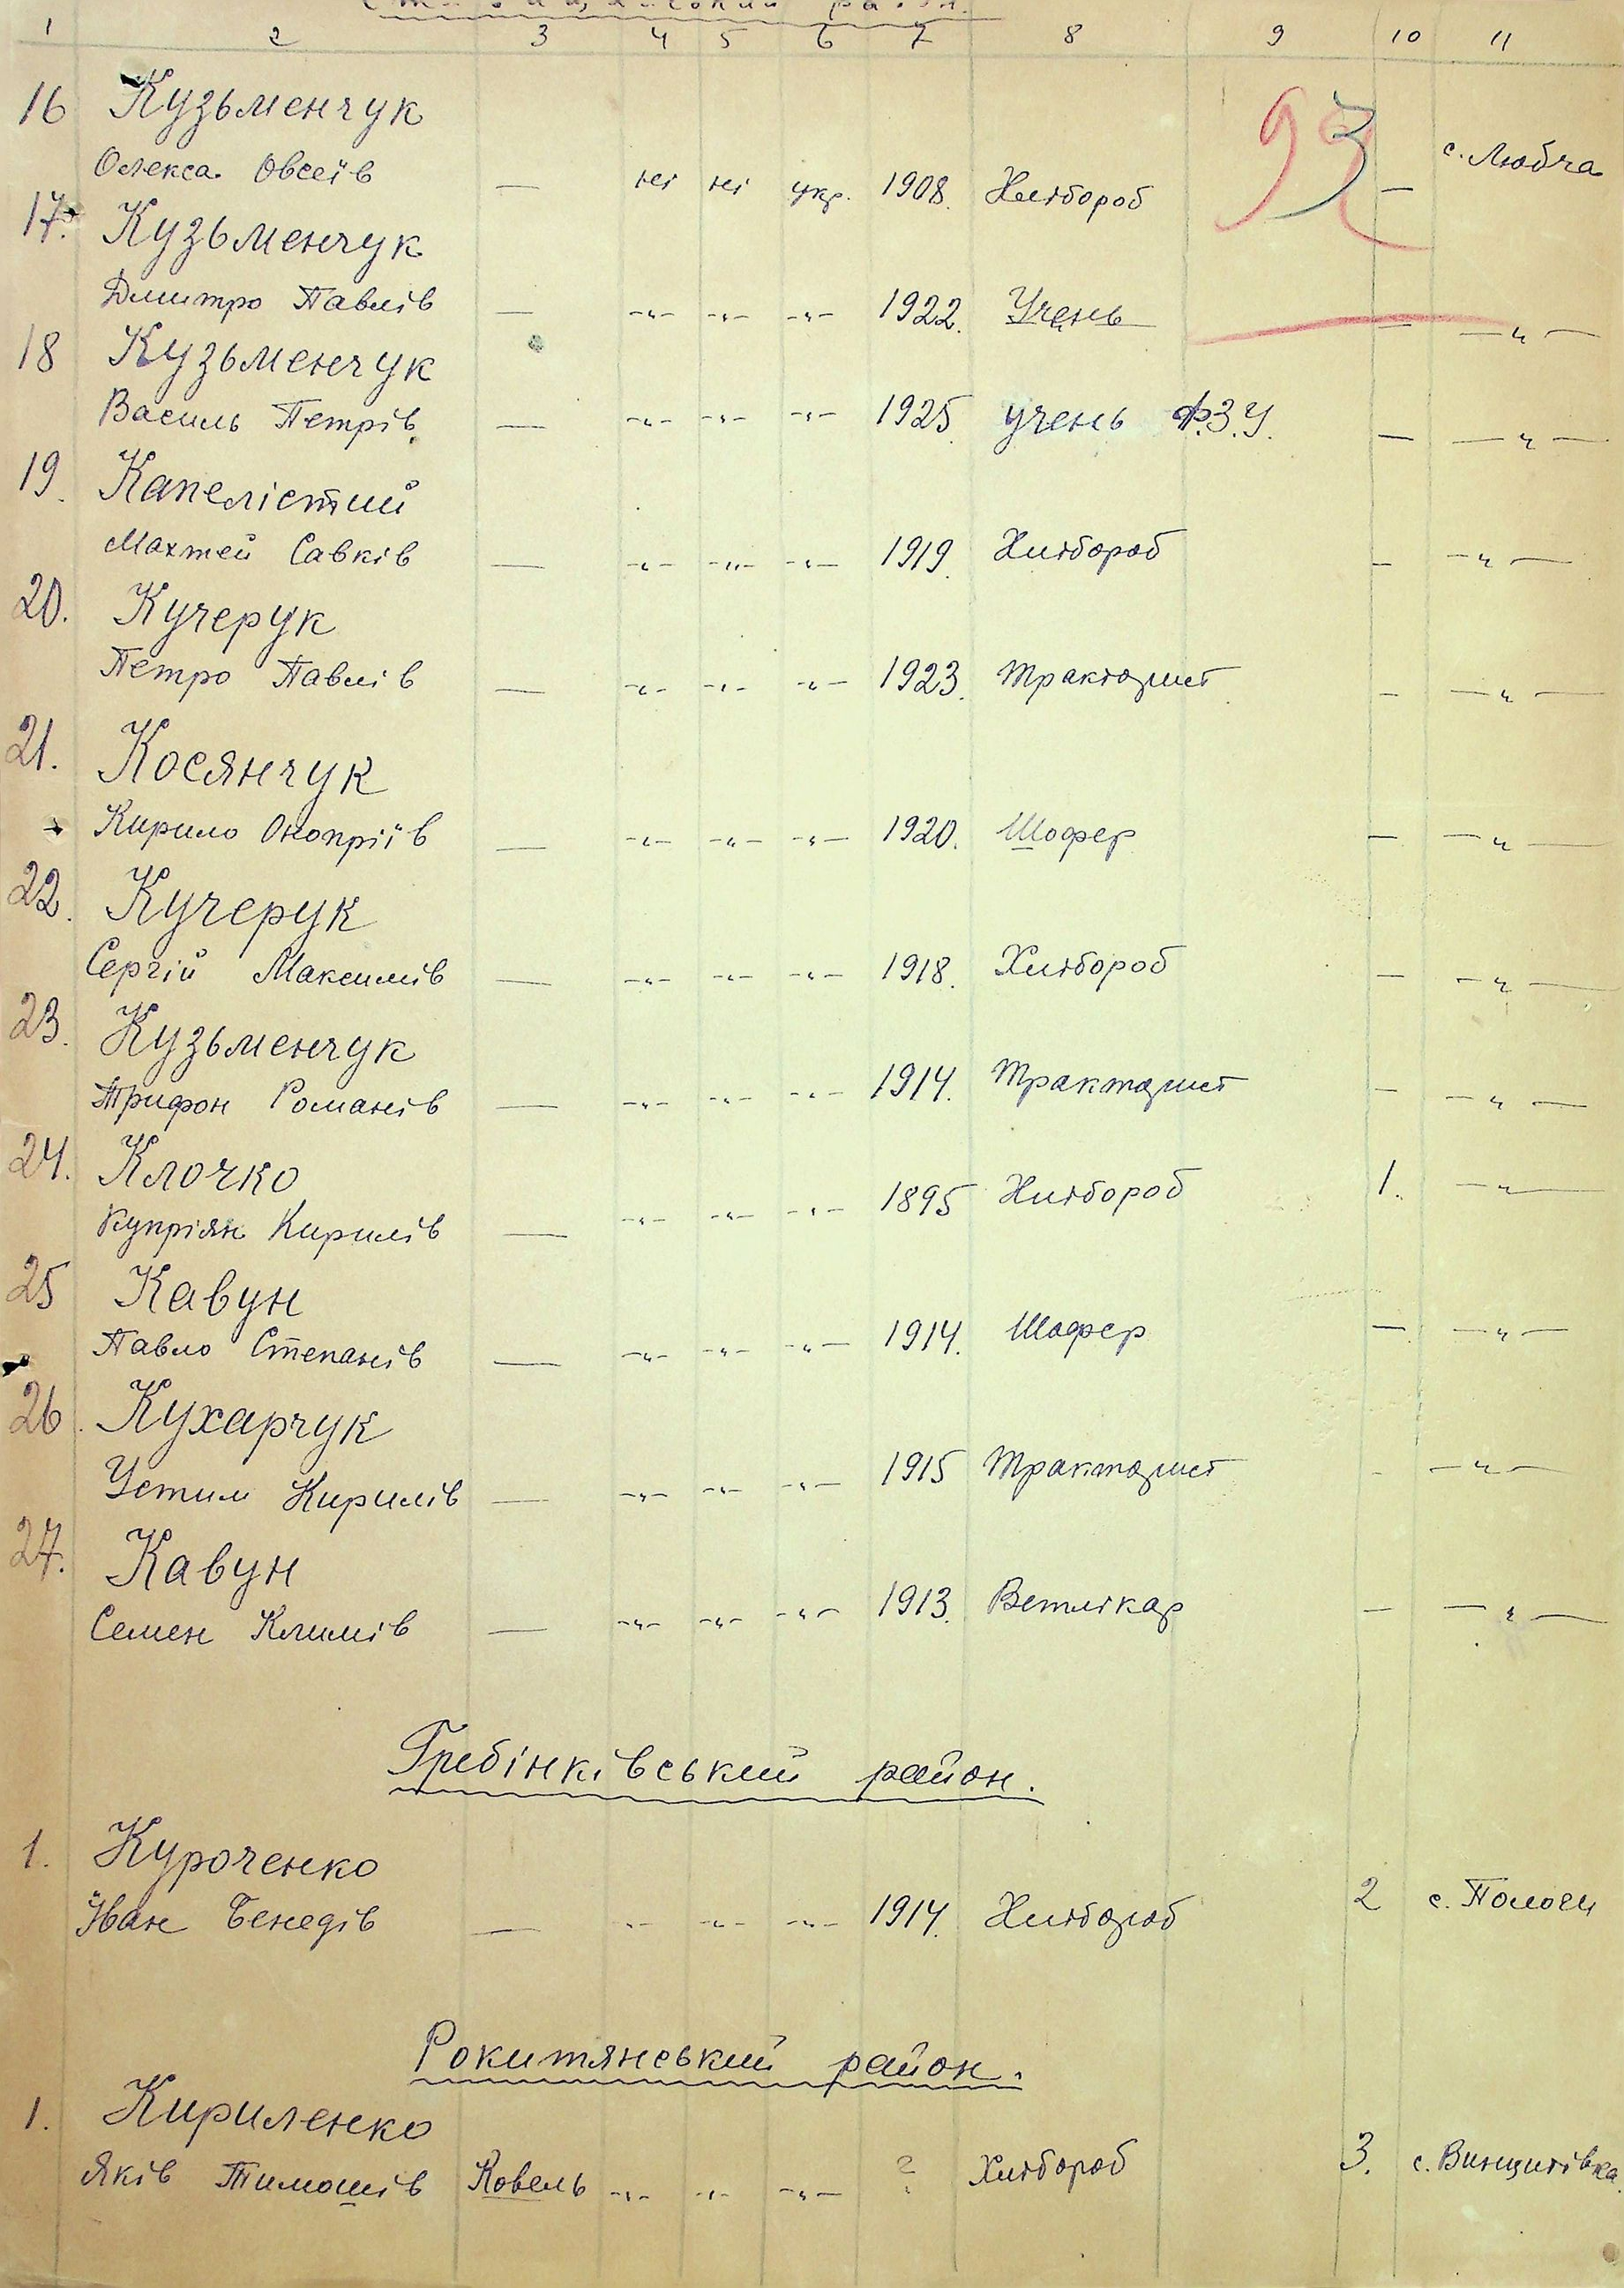 район.
1 2 3 4 5 6 7 8 9 10 11
93
16 Кузьменчук
Олекса Овсеїв — ні ні укр. 1908. Хлібороб — с. Любча
17. Кузьменчук
Дмитро Павлів — -"- -"- -"- 1922. Учень — —"—
18 Кузьменчук
Василь Петрів — -"- -"- -"- 1925 учень Ф.З.У. — —"—
19. Капелістий
Махтей Савків — -"- -"- -"- 1919. Хлібороб — —"—
20. Кучерук
Петро Павлів — -"- -"- -"- 1923. Тракторист — —"—
21. Косянчук
Кирило Онопріїв — -"- -"- -"- 1920. Шофер — —"—
22. Кучерук
Сергій Максимів — -"- -"- -"- 1918. Хлібороб — —"—
23. Кузьменчук
Трифон Романів — -"- -"- -"- 1914. Тракторист — —"—
24. Клочко
Купріян Кирилів — -"- -"- -"- 1895 Хлібороб 1. —"—
25 Кавун
Павло Степанів — -"- -"- -"- 1914. Шофер — —"—
26. Кухарчук
Устим Кирилів — -"- -"- -"- 1915 Тракторист - —"—
27. Кавун
Семен Климів — -"- -"- -"- 1913. Ветлікар — —"—
Гребінківський район.
1. Куроченко
Іван Бенедів — -"- -"- -"- 1914. Хлібороб 2 с. Пологи
Рокитянський район.
1. Кириленко
Яків Тимошів Ковель -"- -"- -"- ? Хлібороб 3. с. Винцитівка.